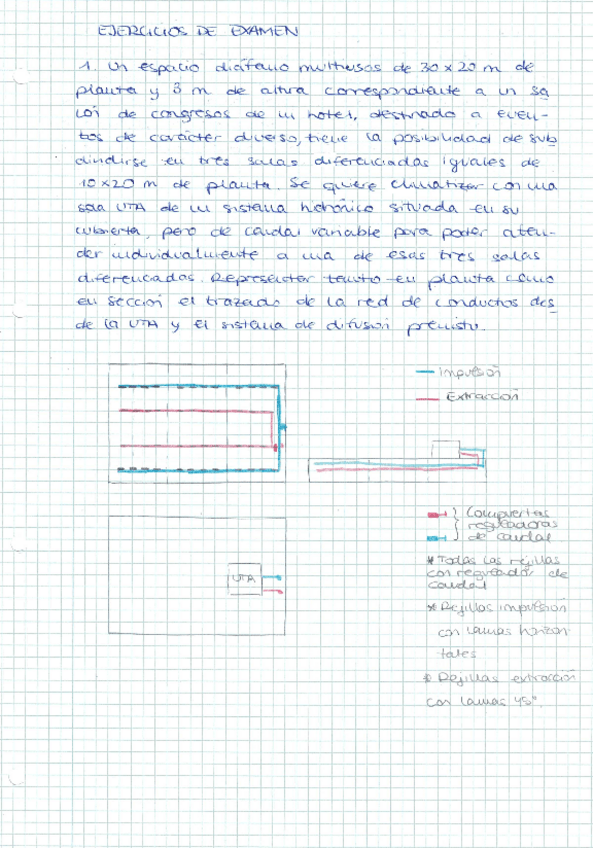 EJERCICIOS DE EXAMEN
1. Un espacio diáfano multiusos de 30 x 20 m de
planta y 3 m de altura correspondiente a un sa
lón de congresos de un hotel, destinado a even-
tos de carácter diverso, tiene la posibilidad de sub
dividirse en tres salas diferenciadas iguales de
10x20 m de planta. Se quiere climatizar con una
sola UTA de un sistema hidrónico situada en su
cubierta, pero de caudal variable para poder aten-
der individualmente a una de esas tres salas
diferenciadas. Representar tanto en planta como
en sección el trazado de la red de conductos des
de la UTA y el sistema de difusión previsto.
Impulsión
Extracción
Compuertas
reguladoras
de caudal
UTA
* Todas las rejillas
con regulador de
caudal
* Rejillas impulsión
con lamas horizon
tales
* Rejillas extracción
con lamas 45º.